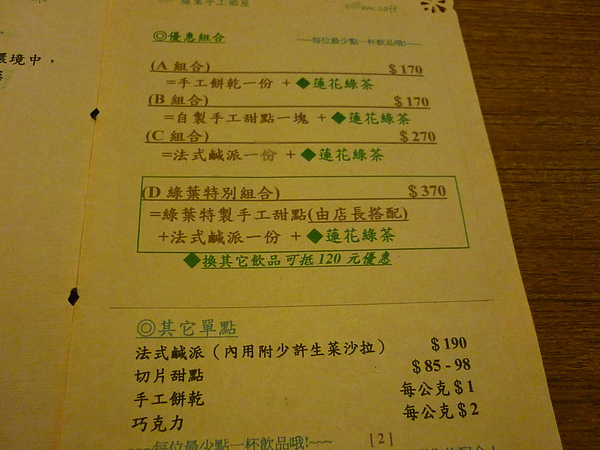 綠葉手工部屋
環境中，
◎優惠組合
~~每位最少點一杯飲品哦!~~
(A 組合) $170
=手工餅乾一份 + ◆蓮花綠茶
(B 組合) $170
=自製手工甜點一塊 + ◆蓮花綠茶
(C 組合) $270
=法式鹹派一份 + ◆蓮花綠茶
(D 綠葉特別組合) $370
=綠葉特製手工甜點(由店長搭配)
+法式鹹派一份 + ◆蓮花綠茶
◆換其它飲品可抵 120 元優惠
◎其它單點
法式鹹派（內用附少許生菜沙拉） $190
切片甜點 $85-98
手工餅乾 每公克 $1
巧克力 每公克 $2
~~~每位最少點一杯飲品哦!~~~
[2]